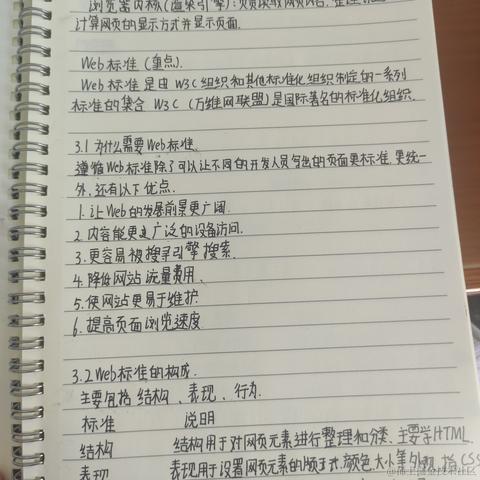 浏览器内核(渲染引擎):负责读取网页内容,整理讯息
计算网页的显示方式并显示页面.
Web标准(重点).
Web标准是由W3C组织和其他标准化组织制定的一系列
标准的集合 W3C (万维网联盟)是国际著名的标准化组织.
3.1 为什么需要Web标准.
遵循Web标准除了可以让不同的开发人员写出的页面更标准.更统一
外,还有以下优点.
1.让Web的发展前景更广阔.
2.内容能更广泛的设备访问.
3.更容易被搜寻引擎搜索.
4.降低网站流量费用.
5.使网站更易于维护
6.提高页面浏览速度
3.2 Web标准的构成.
主要包括 结构、表现、行为.
标准 说明
结构 结构用于对网页元素进行整理和分类.主要学HTML.
表现 表现用于设置网页元素的版式.颜色.大小等外观.指CSS